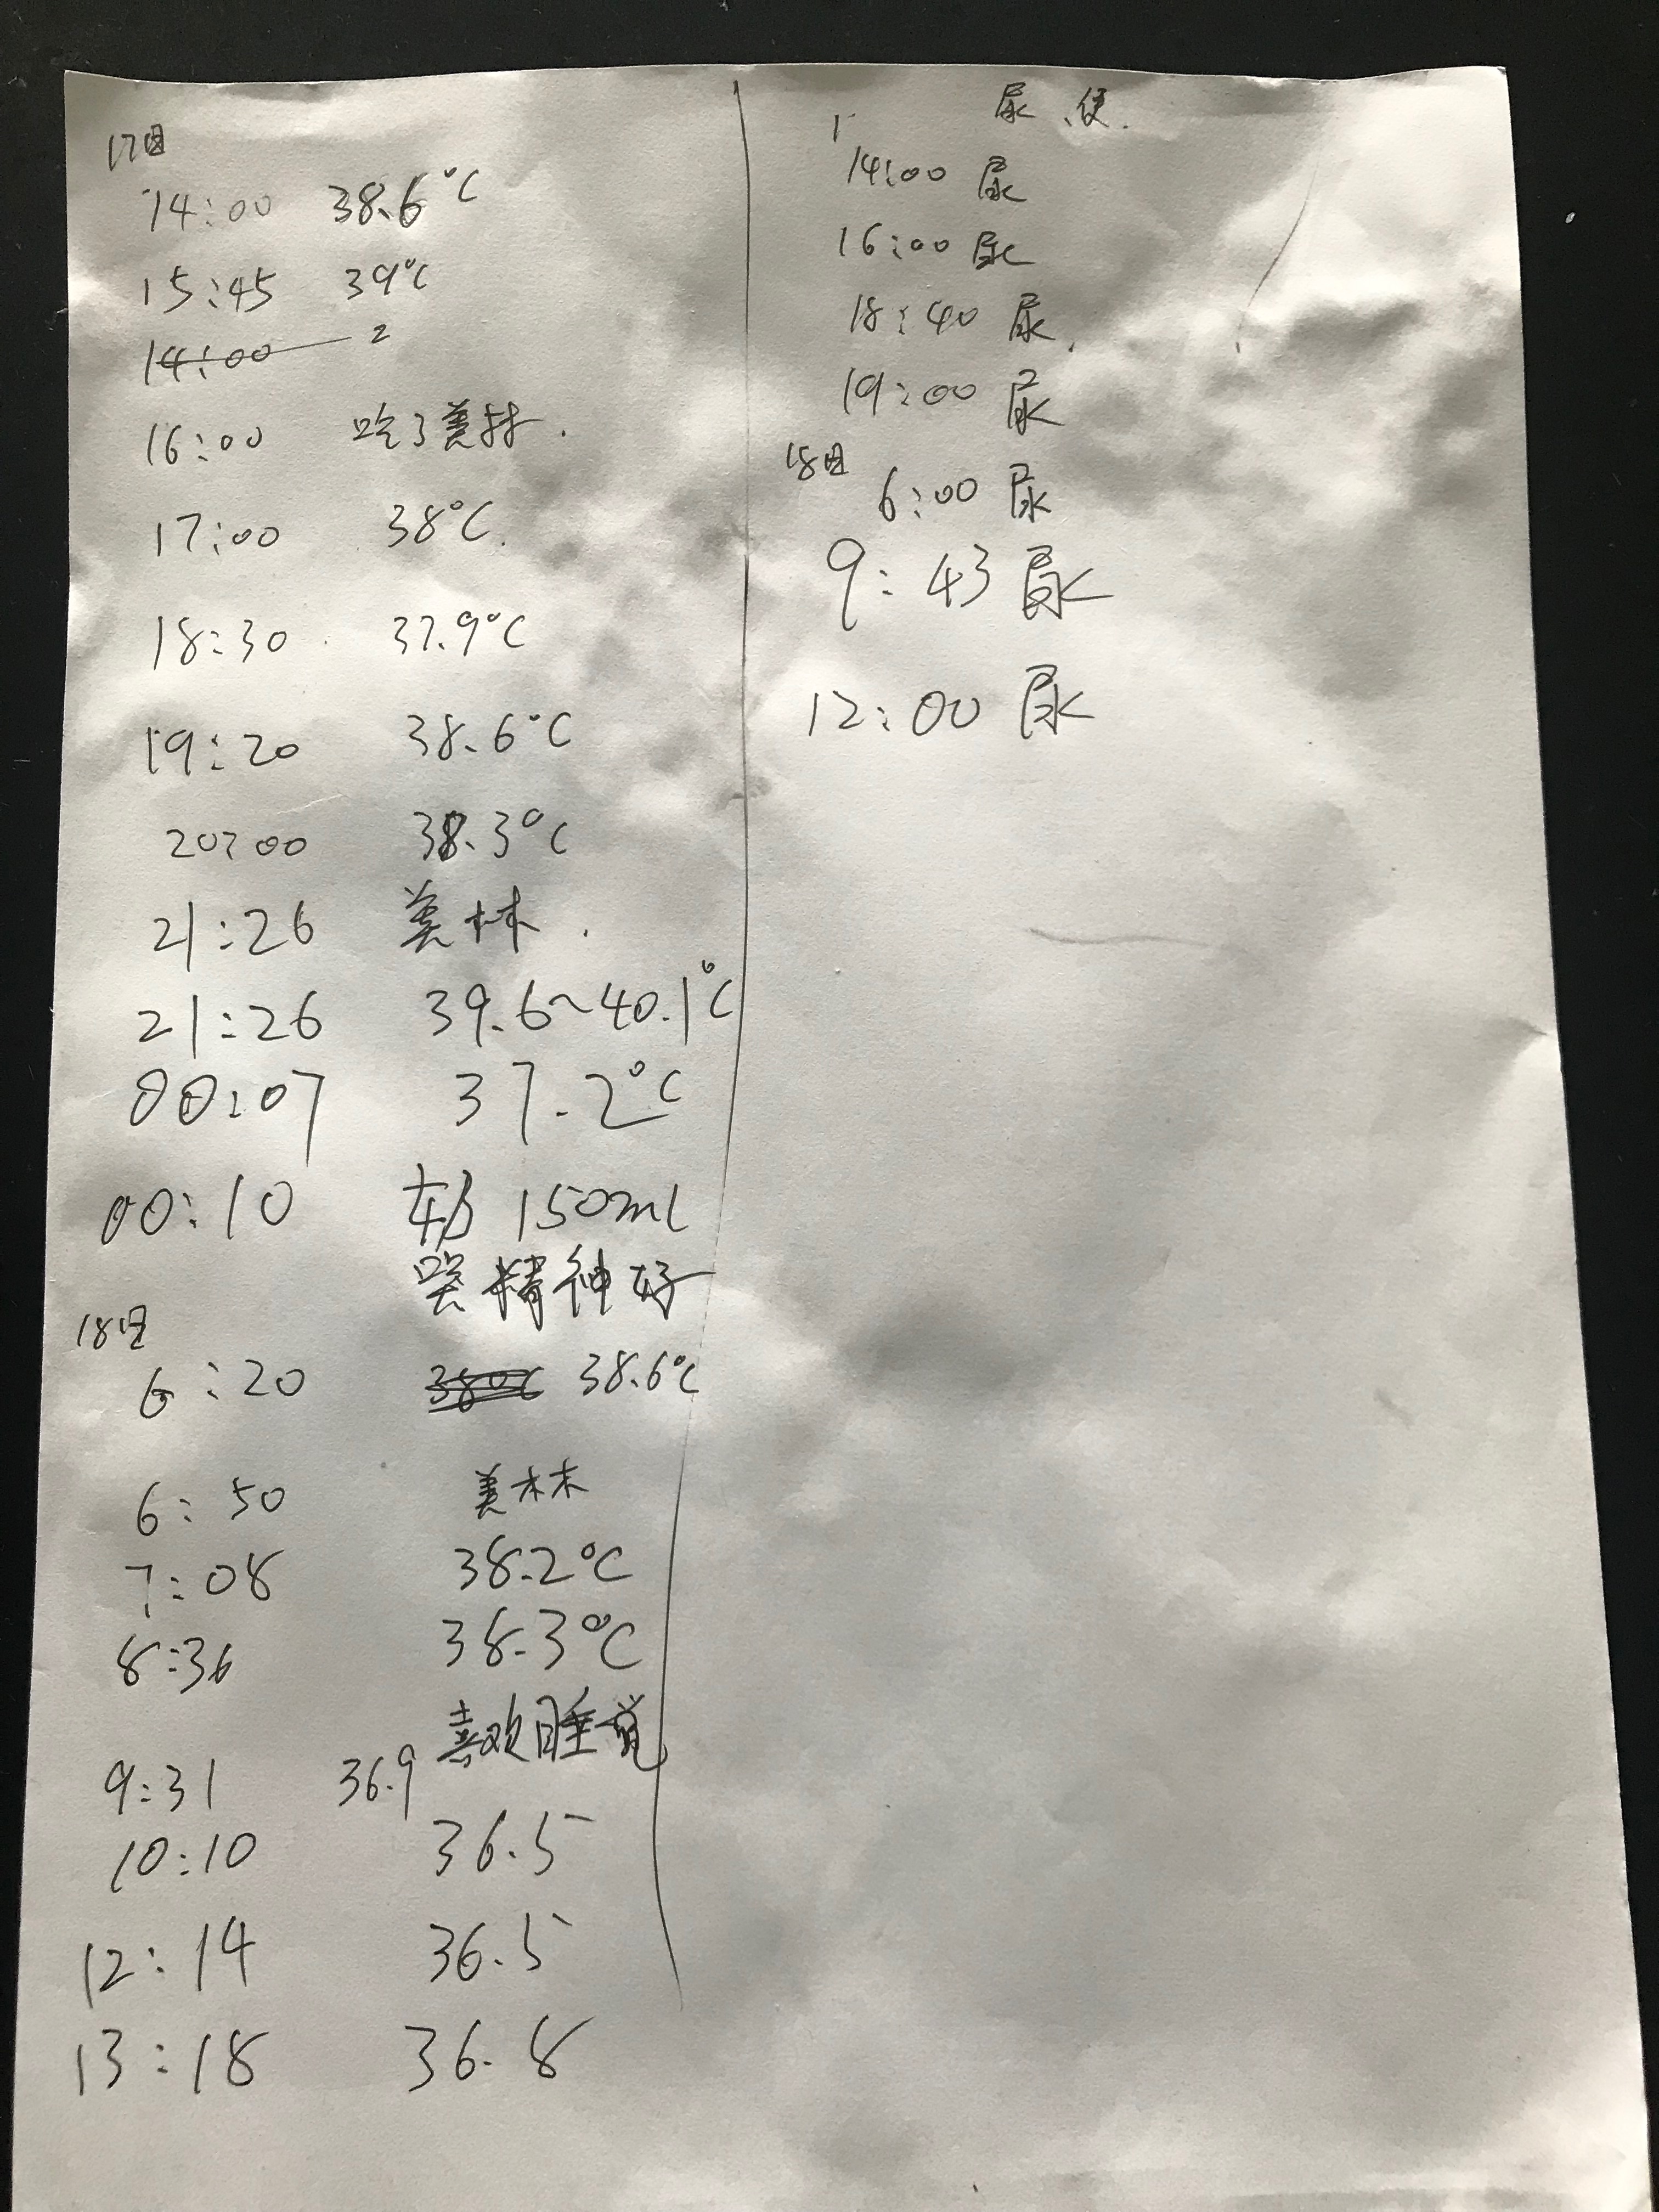 17日
14:00 38.6°C
15:45 39°C
14:00 2
16:00 吃了美林.
17:00 38°C.
18:30 37.9°C
19:20 38.6°C
20:00 38.3°C
21:26 美林.
21:26 39.6~40.1°C
00:07 37.2°C
00:10 奶 150ml
哭精神好
18日
6:20 38°C 38.6°C
6:50 美林
7:08 38.2°C
8:36 38.3°C
喜欢睡觉
9:31 36.9
10:10 36.5
12:14 36.5
13:18 36.8
尿、便.
14:00 尿
16:00 尿
18:40 尿.
19:00 尿
18日
6:00 尿
9:43 尿
12:00 尿